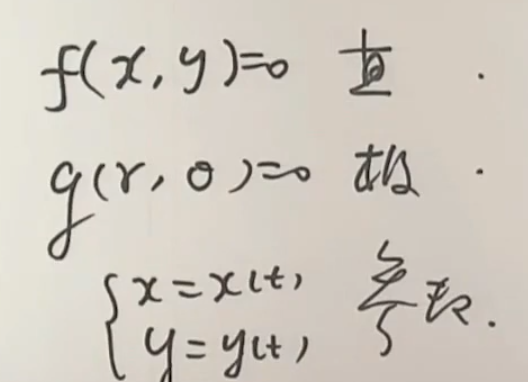 f(x,y)=0 直.
g(r,θ)=0 极.
{x=x(t)
y=y(t) 参数.